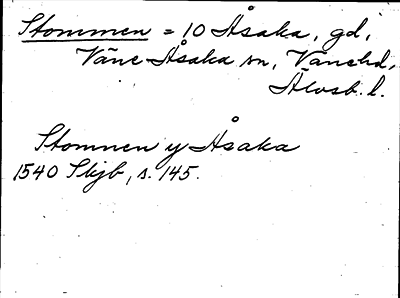 Stommen = 10 Åsaka, gd,
Väne Åsaka sn, Vänehd,
Älvsb. l.
Stomnen y Åsaka
1540 Skjb, s. 145.